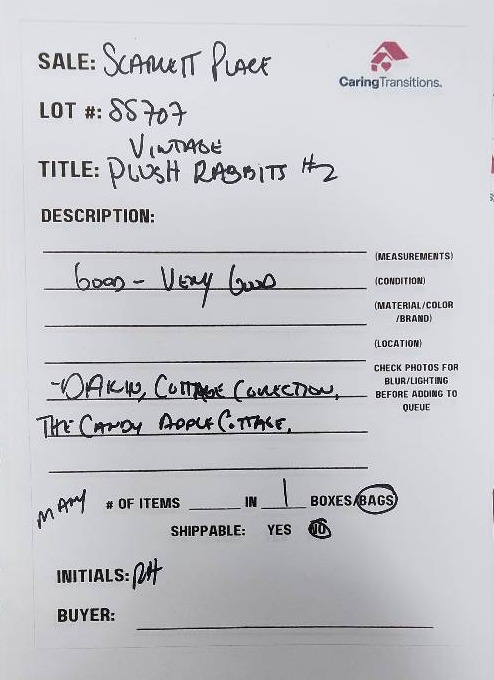 SALE: SCARLETT PLACE
CaringTransitions.
LOT #: SS707
VINTAGE
TITLE: PLUSH RABBITS #2
DESCRIPTION:
(MEASUREMENTS)
GOOD - VERY GOOD (CONDITION)
(MATERIAL/COLOR
/BRAND)
(LOCATION)
CHECK PHOTOS FOR
BLUR/LIGHTING
BEFORE ADDING TO
QUEUE
-DAKIN, COTTAGE COLLECTION,
THE CANDY APPLE COTTAGE.
MANY # OF ITEMS IN 1 BOXES/BAGS
SHIPPABLE: YES NO
INITIALS: RH
BUYER: